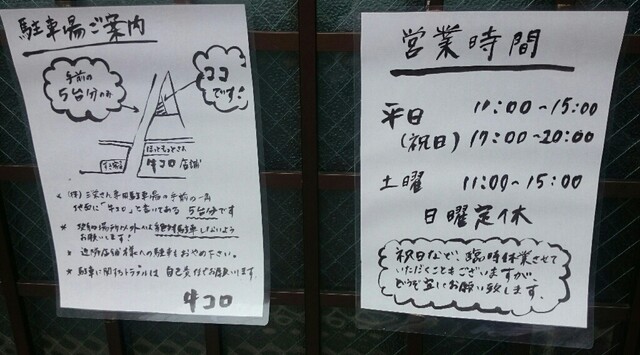 駐車場ご案内
手前の
5台分のみ
ココ
です!
ほっともっとさん
牛コロ店舗
(株)三栄さん専用駐車場の手前の一角
地面に「牛コロ」と書いてある 5台分です
※ 契約場所以外には絶対駐車しないよう
お願いします!
※ 近隣店舗様への駐車もおやめ下さい。
※ 駐車に関するトラブルは自己責任でお願いします。
牛コロ
営業時間
平日 11:00~15:00
(祝日) 17:00~20:00
土曜 11:00~15:00
日曜定休
祝日など、臨時休業させて
いただくこともございますが、
どうぞ宜しくお願い致します。